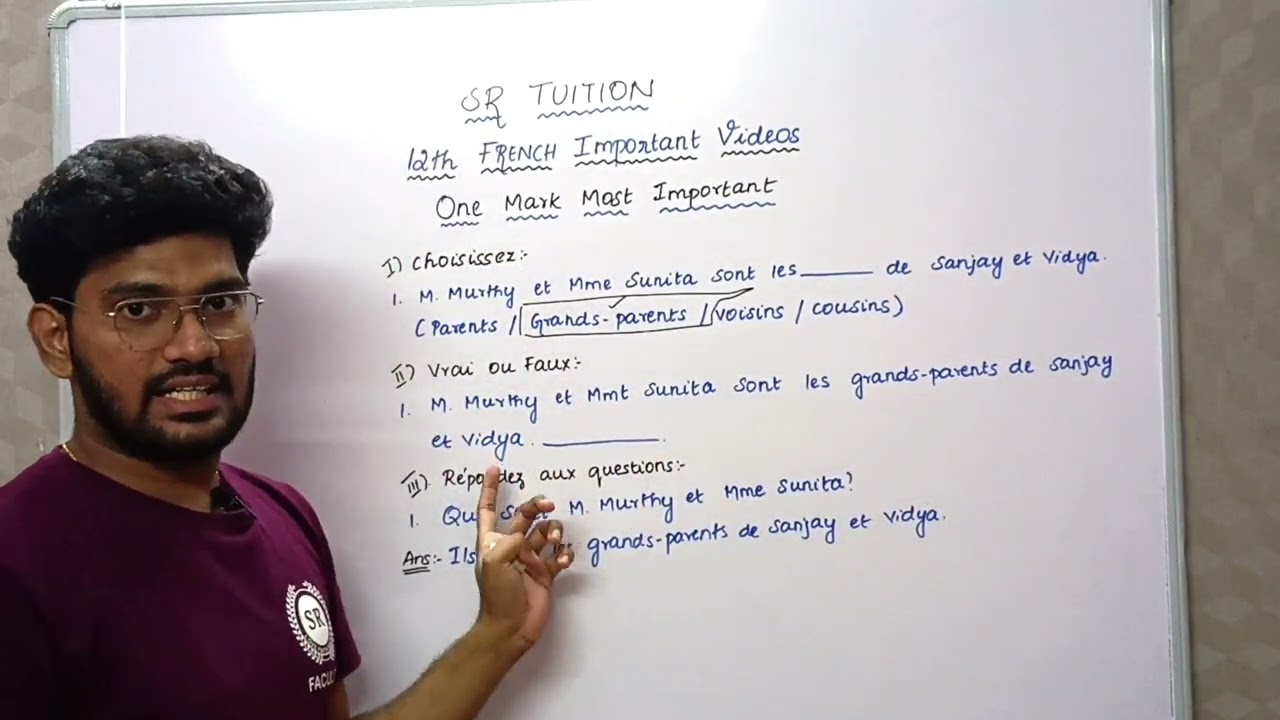 SR TUITION
12th FRENCH Important Videos
One Mark Most Important
I) Choisissez:-
1. M. Murthy et Mme Sunita sont les______ de Sanjay et Vidya.
(Parents / Grands-parents / voisins / cousins)
II) Vrai ou Faux:-
1. M. Murthy et Mmt Sunita sont les grands-parents de Sanjay
et Vidya. ______.
III). aux questions:-
1. M. Murthy et Mme Sunita?
Ans:- Ils grands-parents de Sanjay et Vidya.
SR